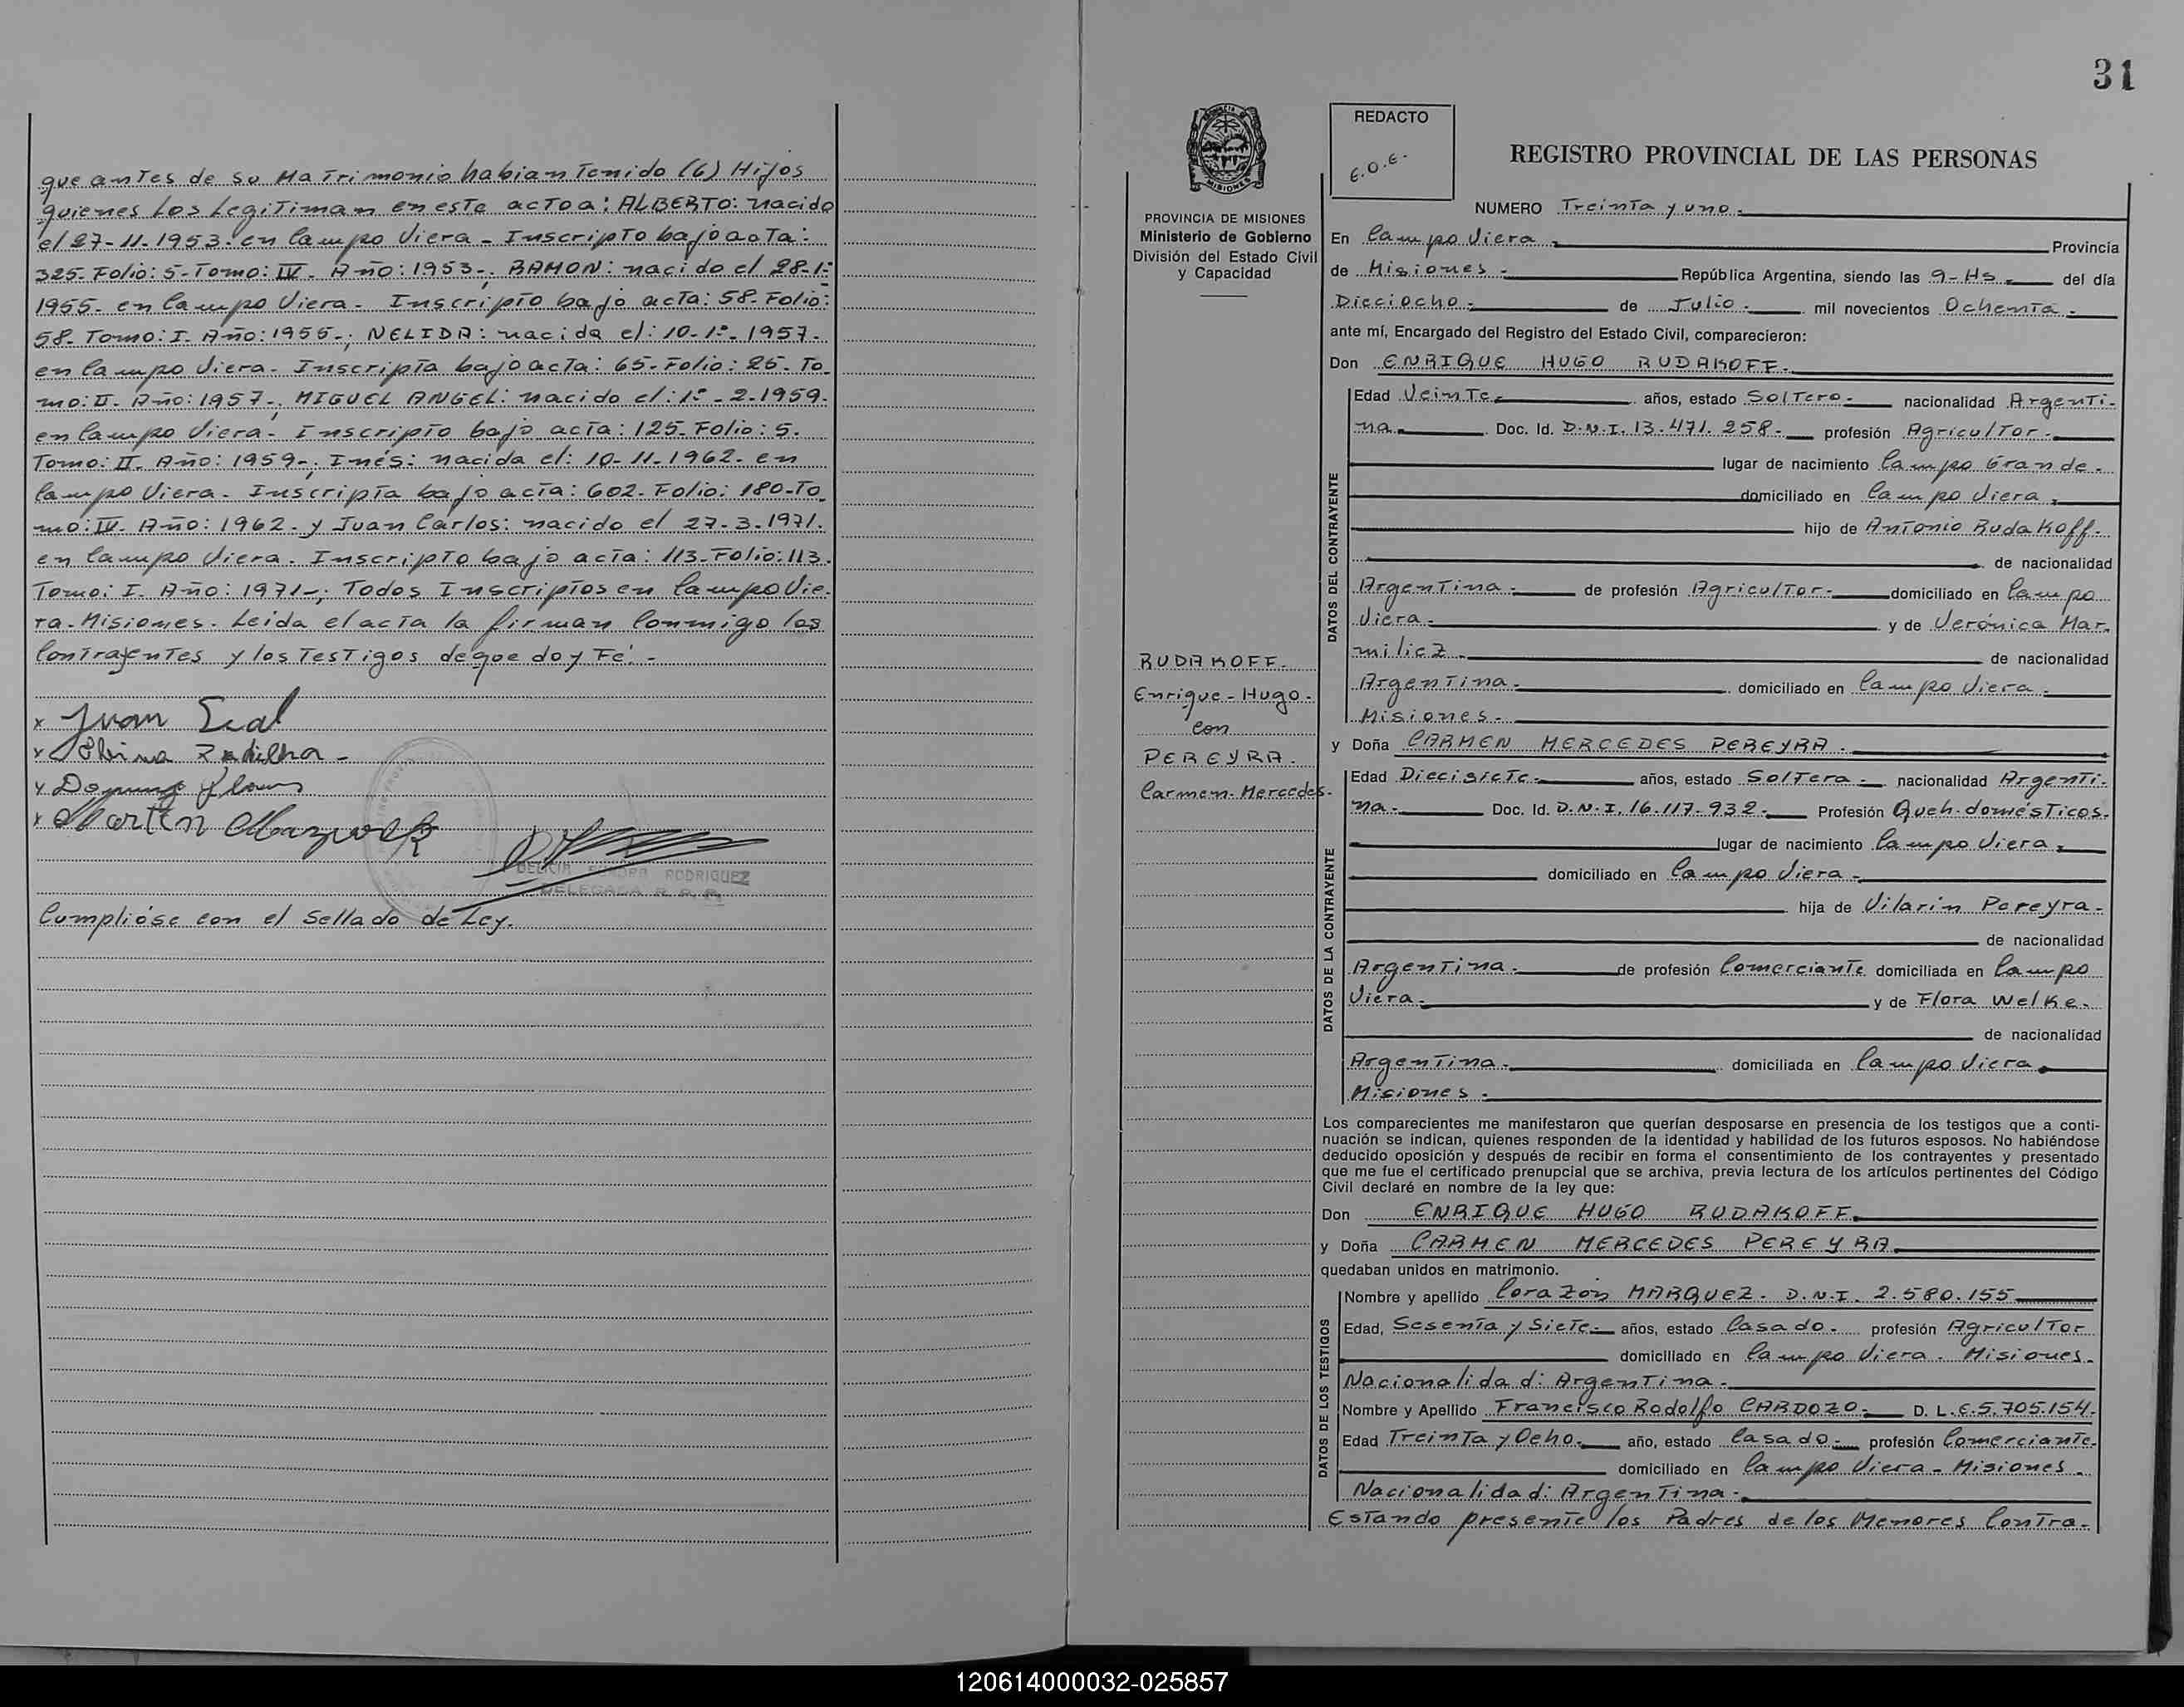 que antes de su Matrimonio habian Tenido (6) Hijos
quienes Los Legitiman en este acto a: ALBERTO: nacido
el 27-11-1953. en Campo Viera - Inscripto bajo acta:
325- Folio: 5- Tomo: IV- Año: 1953-, RAMON: nacido el 28-1º
1955- en Campo Viera - Inscripto bajo acta: 58. Folio:
58- Tomo: I. Año: 1955-; NELIDA: nacida el: 10-1º-1957-
en Campo Viera- Inscripta bajo acta: 65- Folio: 25- To_
mo: II. Año: 1957-, MIGUEL ANGEL: nacido el: 1º-2-1959-
en Campo Viera- Inscripto bajo acta: 125- Folio: 5.
Tomo: II. Año: 1959-, Inés: nacida el: 10-11-1962- en
Campo Viera - Inscripta bajo acta: 602- Folio: 180-To_
mo: IV. Año: 1962- y Juan Carlos: nacido el 27-3-1971.
en Campo Viera. Inscripto bajo acta: 113- Folio: 113.
Tomo: I. Año: 1971-; Todos Inscriptos en Campo Vie.
ra- Misiones. Leida el acta la firman Conmigo los
Contrayentes y los Testigos de que doy Fé. -
x Juan Leal
x Albina Zadilha -
x Domingo
x Martin
RODRIGUEZ
DELEGADA R. P. P.
Cumplióse con el Sellado de Ley.
31
PROVINCIA DE MISIONES
Ministerio de Gobierno
División del Estado Civil
y Capacidad
RUDAKOFF.
Enrique-Hugo-
con
PEREYRA.
Carmen-Mercedes-
REDACTO
E.O.E.
REGISTRO PROVINCIAL DE LAS PERSONAS
NUMERO Treinta y uno-
En Campo Viera- Provincia
de Misiones- República Argentina, siendo las 9-Hs- del día
Dieciocho- de Julio- mil novecientos Ochenta-
ante mí, Encargado del Registro del Estado Civil, comparecieron:
Don ENRIQUE HUGO RUDAKOFF-
DATOS DEL CONTRAYENTE
Edad Veinte- años, estado Soltero- nacionalidad Argenti-
na- Doc. Id. D.N.I. 13.471.258- profesión Agricultor-
lugar de nacimiento Campo Grande-
domiciliado en Campo Viera-
hijo de Antonio Rudakoff-
de nacionalidad
Argentina- de profesión Agricultor- domiciliado en Campo
Viera- y de Verónica Mar_
milicz- de nacionalidad
Argentina- domiciliado en Campo Viera-
Misiones-
y Doña CARMEN MERCEDES PEREYRA-
DATOS DE LA CONTRAYENTE
Edad Diecisiete- años, estado Soltera- nacionalidad Argenti-
na- Doc. Id. D.N.I. 16.117.932- Profesión Queh-domésticos-
lugar de nacimiento Campo Viera-
domiciliado en Campo Viera-
hija de Vilarin Pereyra-
de nacionalidad
Argentina- de profesión Comerciante domiciliada en Campo
Viera- y de Flora Welke-
de nacionalidad
Argentina- domiciliada en Campo Viera-
Misiones-
Los comparecientes me manifestaron que querían desposarse en presencia de los testigos que a conti-
nuación se indican, quienes responden de la identidad y habilidad de los futuros esposos. No habiéndose
deducido oposición y después de recibir en forma el consentimiento de los contrayentes y presentado
que me fue el certificado prenupcial que se archiva, previa lectura de los artículos pertinentes del Código
Civil declaré en nombre de la ley que:
Don ENRIQUE HUGO RUDAKOFF-
y Doña CARMEN MERCEDES PEREYRA-
quedaban unidos en matrimonio.
DATOS DE LOS TESTIGOS
Nombre y apellido Corazón MARQUEZ- D.N.I. 2.580.155-
Edad, Sesenta y Siete- años, estado Casado- profesión Agricultor
domiciliado en Campo Viera- Misiones-
Nacionalidad: Argentina-
Nombre y Apellido Francisco Rodolfo CARDOZO- D. L.E.5.705.154-
Edad Treinta y Ocho- año, estado Casado- profesión Comerciante-
domiciliado en Campo Viera- Misiones-
Nacionalidad: Argentina-
Estando presente los Padres de los Menores Contra-
120614000032-025857